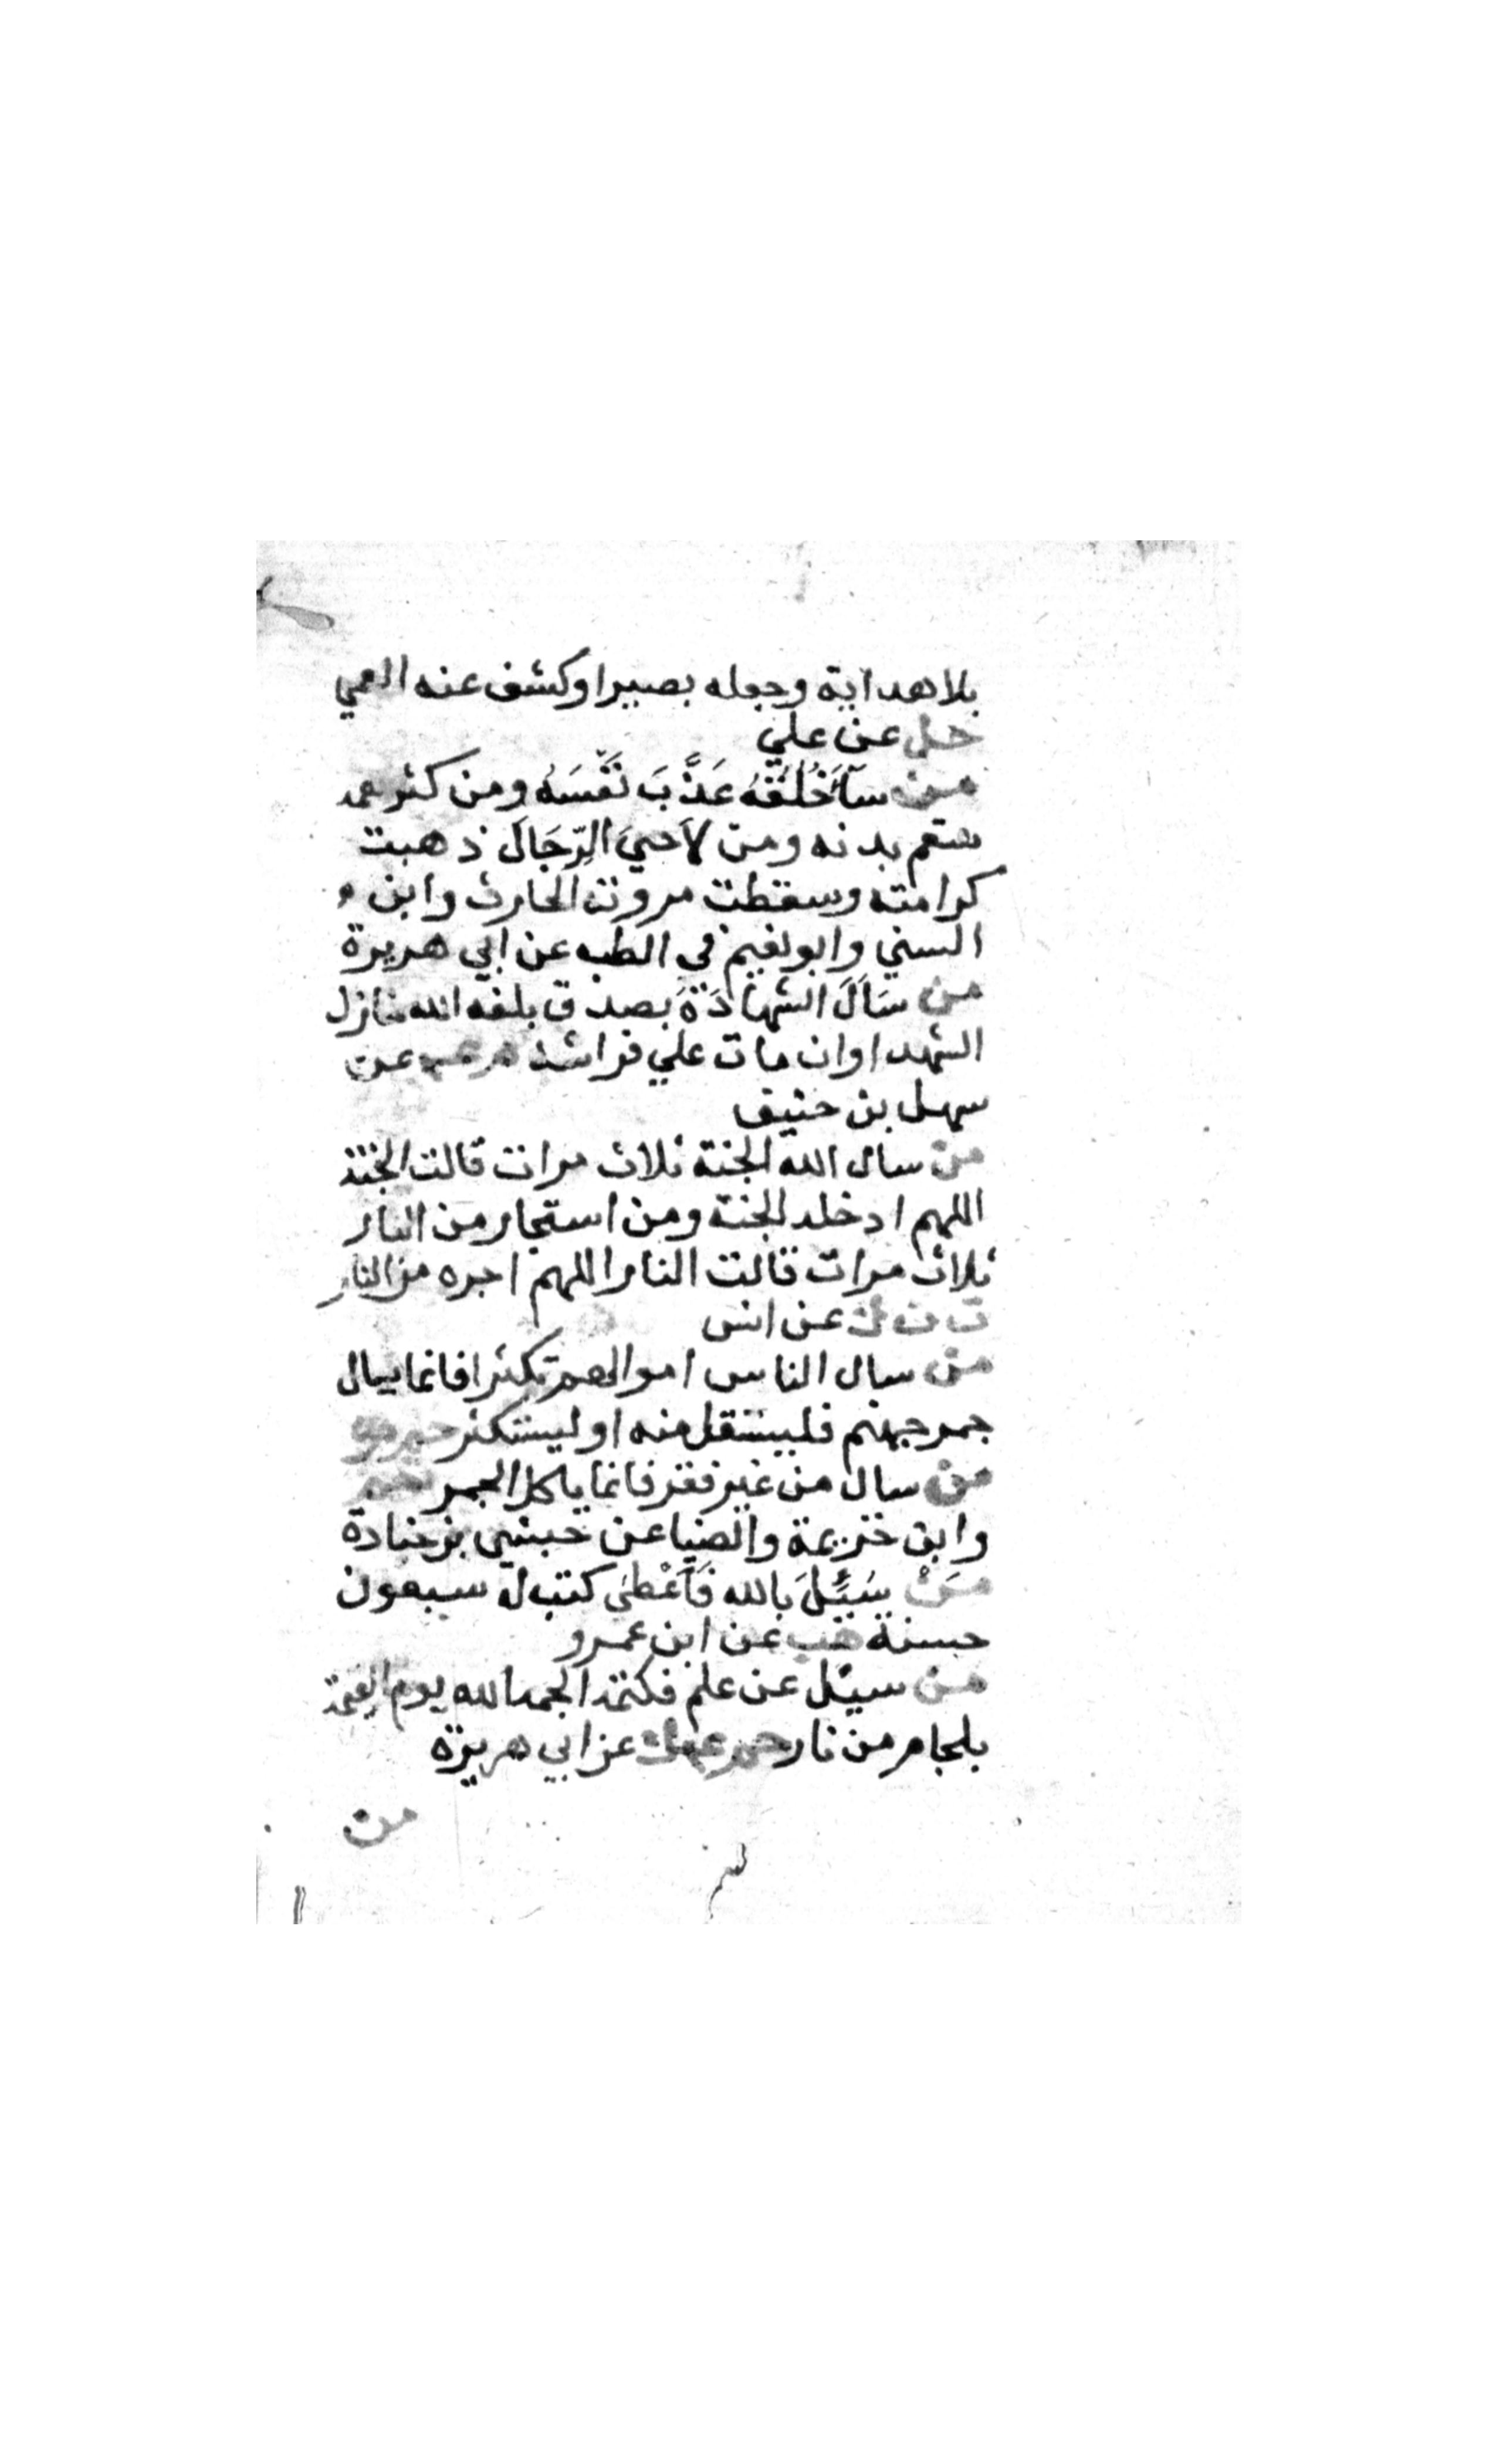 بلا هداية وجعله بصيرا وكشف عنه العمي
حل عن علي
من سآء خُلُقُهُ عَذَّبَ نَفْسَهُ ومن كثر همه
سقم بدنه ومن لاَحَيَ الرِّجَالَ ذهبت
كرامته وسقطت مروته الحارث وابن
السني وابو نعيم في الطب عن ابي هريرة
من سَأَلَ الشهَادَةَ بصدق بلغه الله منازل
الشهدا وان مات علي فراشه م عه عن
سهل بن حنيف
من سال الله الجنة ثلاث مرات قالت الجنة
اللهم ادخله الجنة ومن استجار من النار
ثلاث مرات قالت النار اللهم اجره من النار
ت ن ك عن انس
من سال الناس اموالهم تكثرا فانما يسال
جمر جهنم فليستقل منه او ليستكثر حم م
من سال من غير فقر فانما ياكل الجمر حم
وابن خزيمة والضيا عن حبشي بن جنادة
مَنْ سُئِلَ بَالله فَأَعْطَى كتب له سبعون
حسنة هب عن ابن عمرو
من سيئل عن علم فكتمه الجمه الله يوم القيمة
بلجام من نار حم عه ك عن ابي هريرة
من